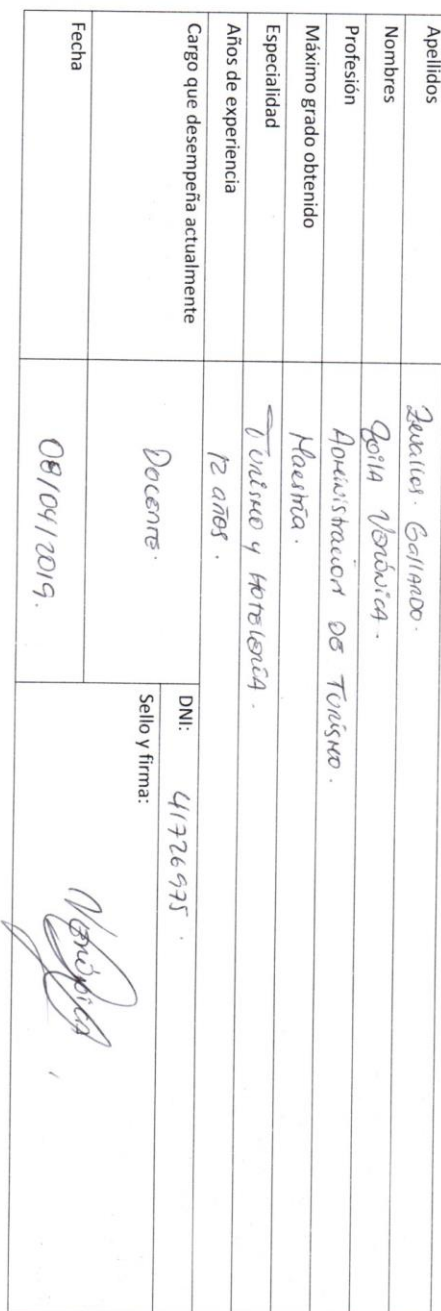 Apellidos Zevallos Gallardo.
Nombres Zoila Verónica.
Profesión Administración de Turismo.
Máximo grado obtenido Maestría.
Especialidad Turismo y Hotelería.
Años de experiencia 12 años.
Cargo que desempeña actualmente Docente. DNI: 41726975.
Fecha 08/04/2019. Sello y firma: Verónica